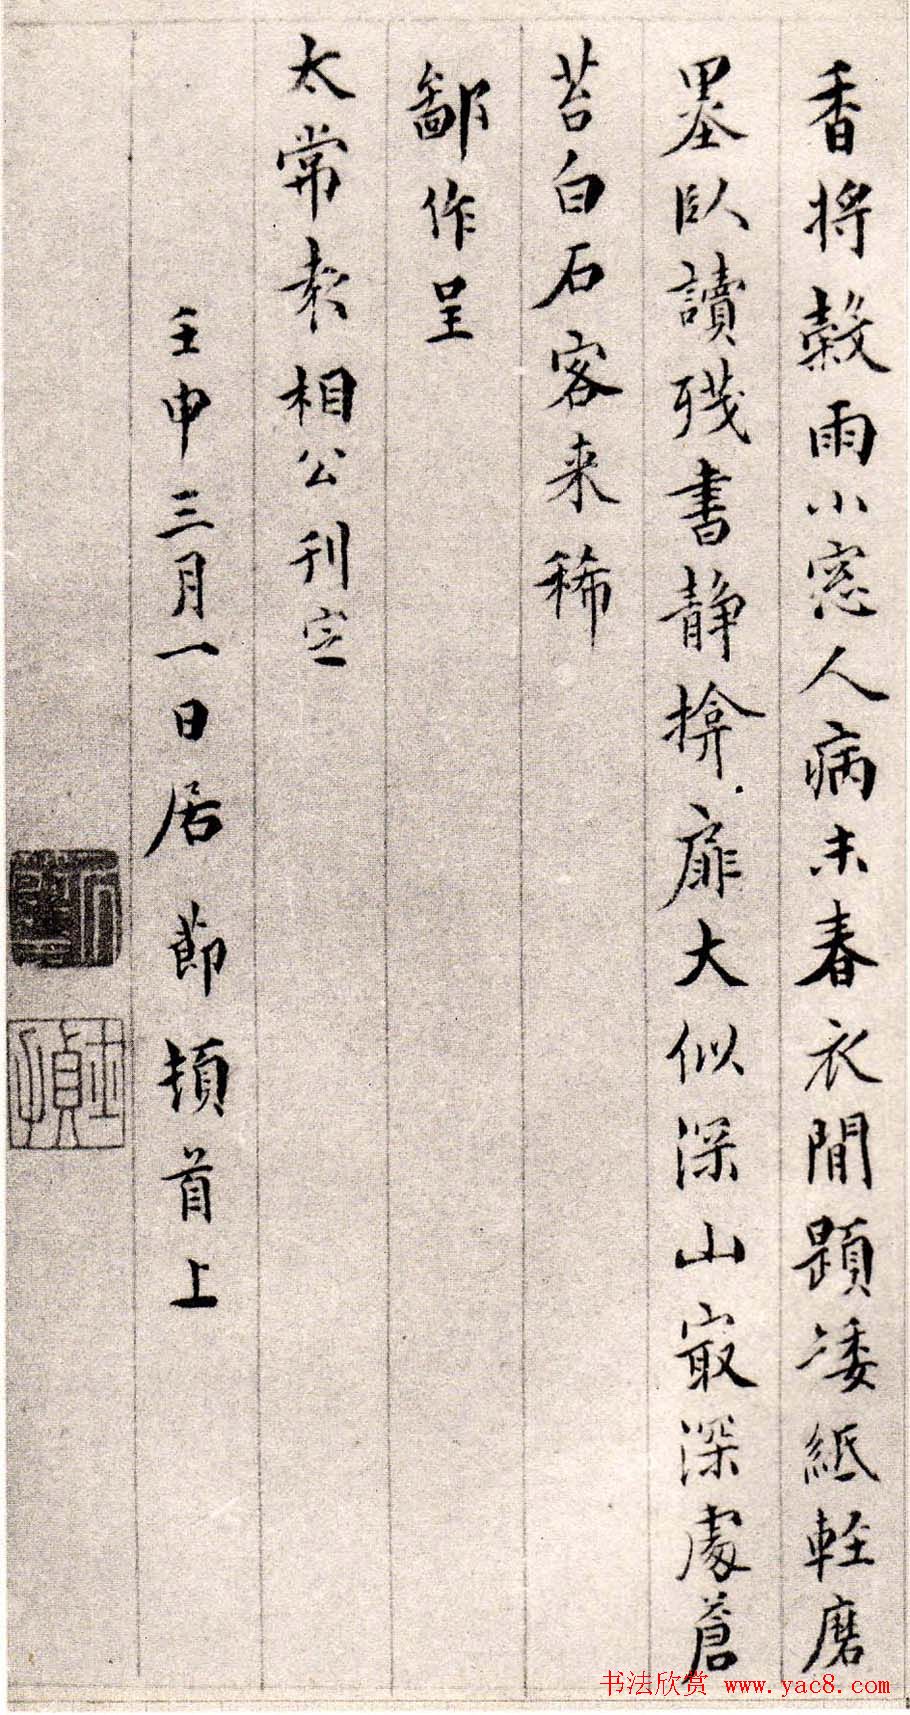 香將穀雨小窓人病未春衣閒題矮紙輕磨
墨臥讀殘書静揜扉大似深山寂深處蒼
苔白石客来稀
鄙作呈
太常袁相公刊定
壬申三月一日居節頓首上
士貞
书法欣赏 www.yac8.com